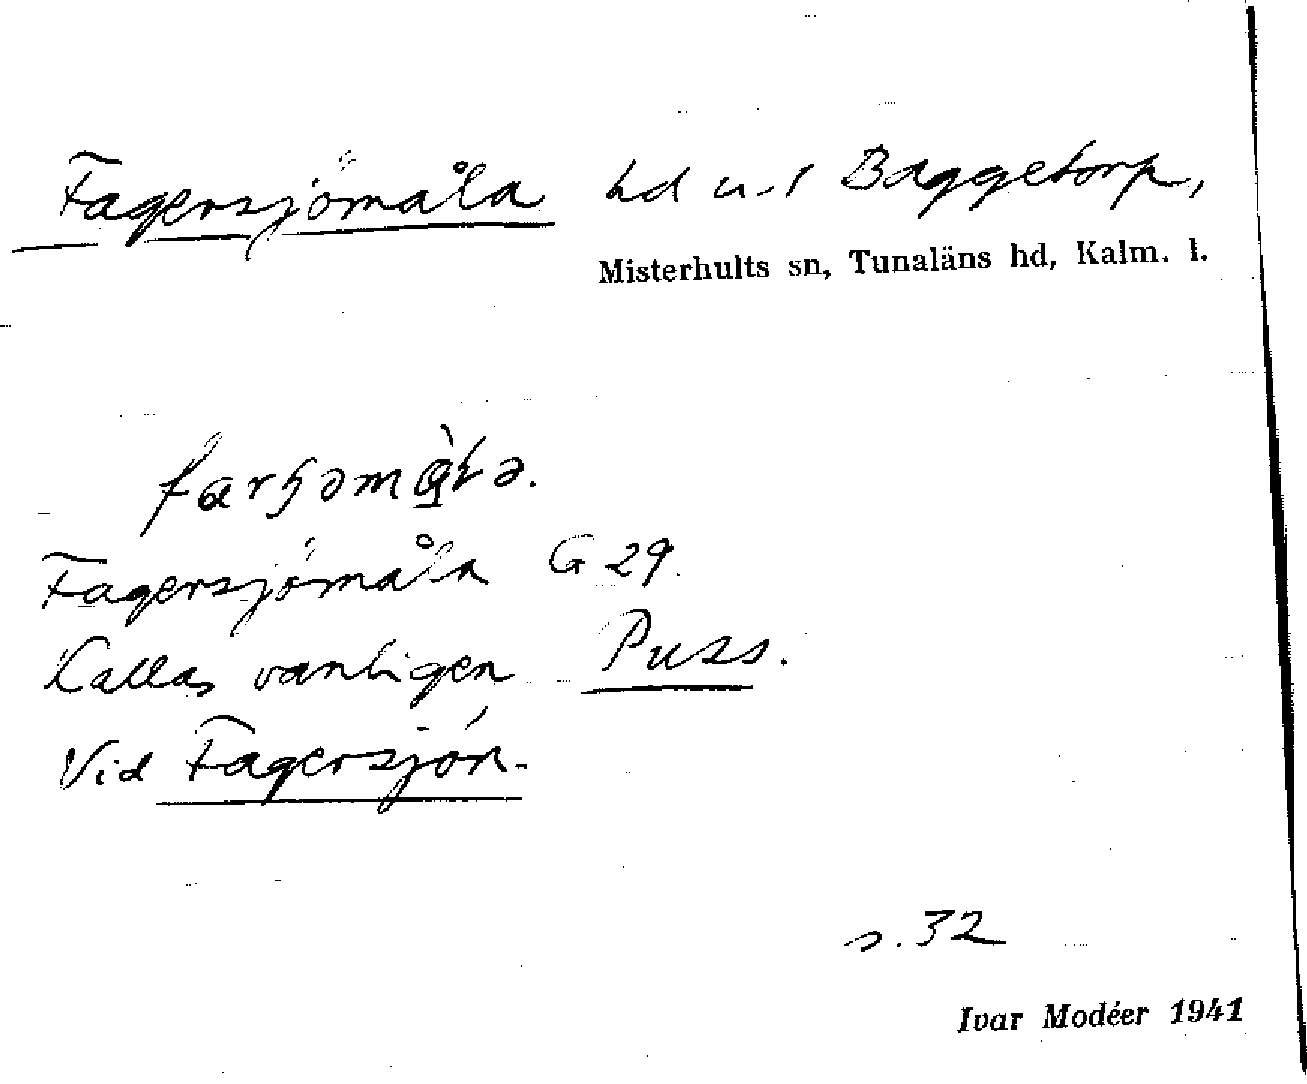 Fagersjömåla hd u. f Baggetorp,
Misterhults sn, Tunaläns hd, Kalm. l.
Fagersjömåla G 29.
Kallas vanligen Puss.
Vid Fagersjön.
s. 32
Ivar Modéer 1941